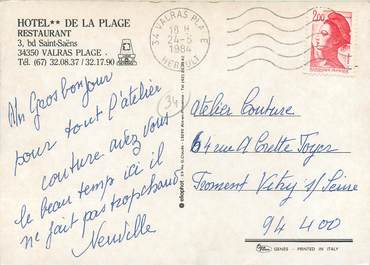 HOTEL** DE LA PLAGE
RESTAURANT
3, bd Saint-Saëns
34350 VALRAS PLAGE
Tél. (67) 32.08.37 / 32.17.90
34 VALRAS PLAGE
16 H
24-5
1984
HERAULT
2,00
Un Gros bonjour
pour tout l'atelier
couture avez vous
le beau temps ici il
ne fait pas trop chaud
Neuville
34
Atelier Couture
64 rue A Crette Foyer
Froment Vitry s/ Seine
94 400
GENES - PRINTED IN ITALY